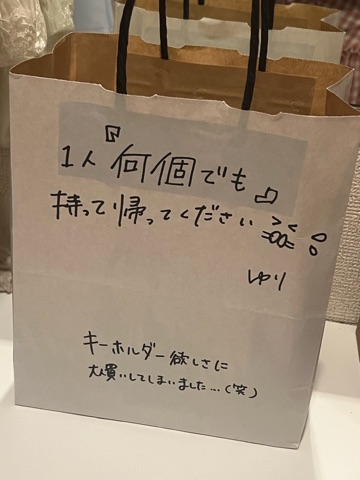 1人『何個でも』
持って帰ってください
ゆり
キーホルダー欲しさに
大人買いしてしまいました…(笑)